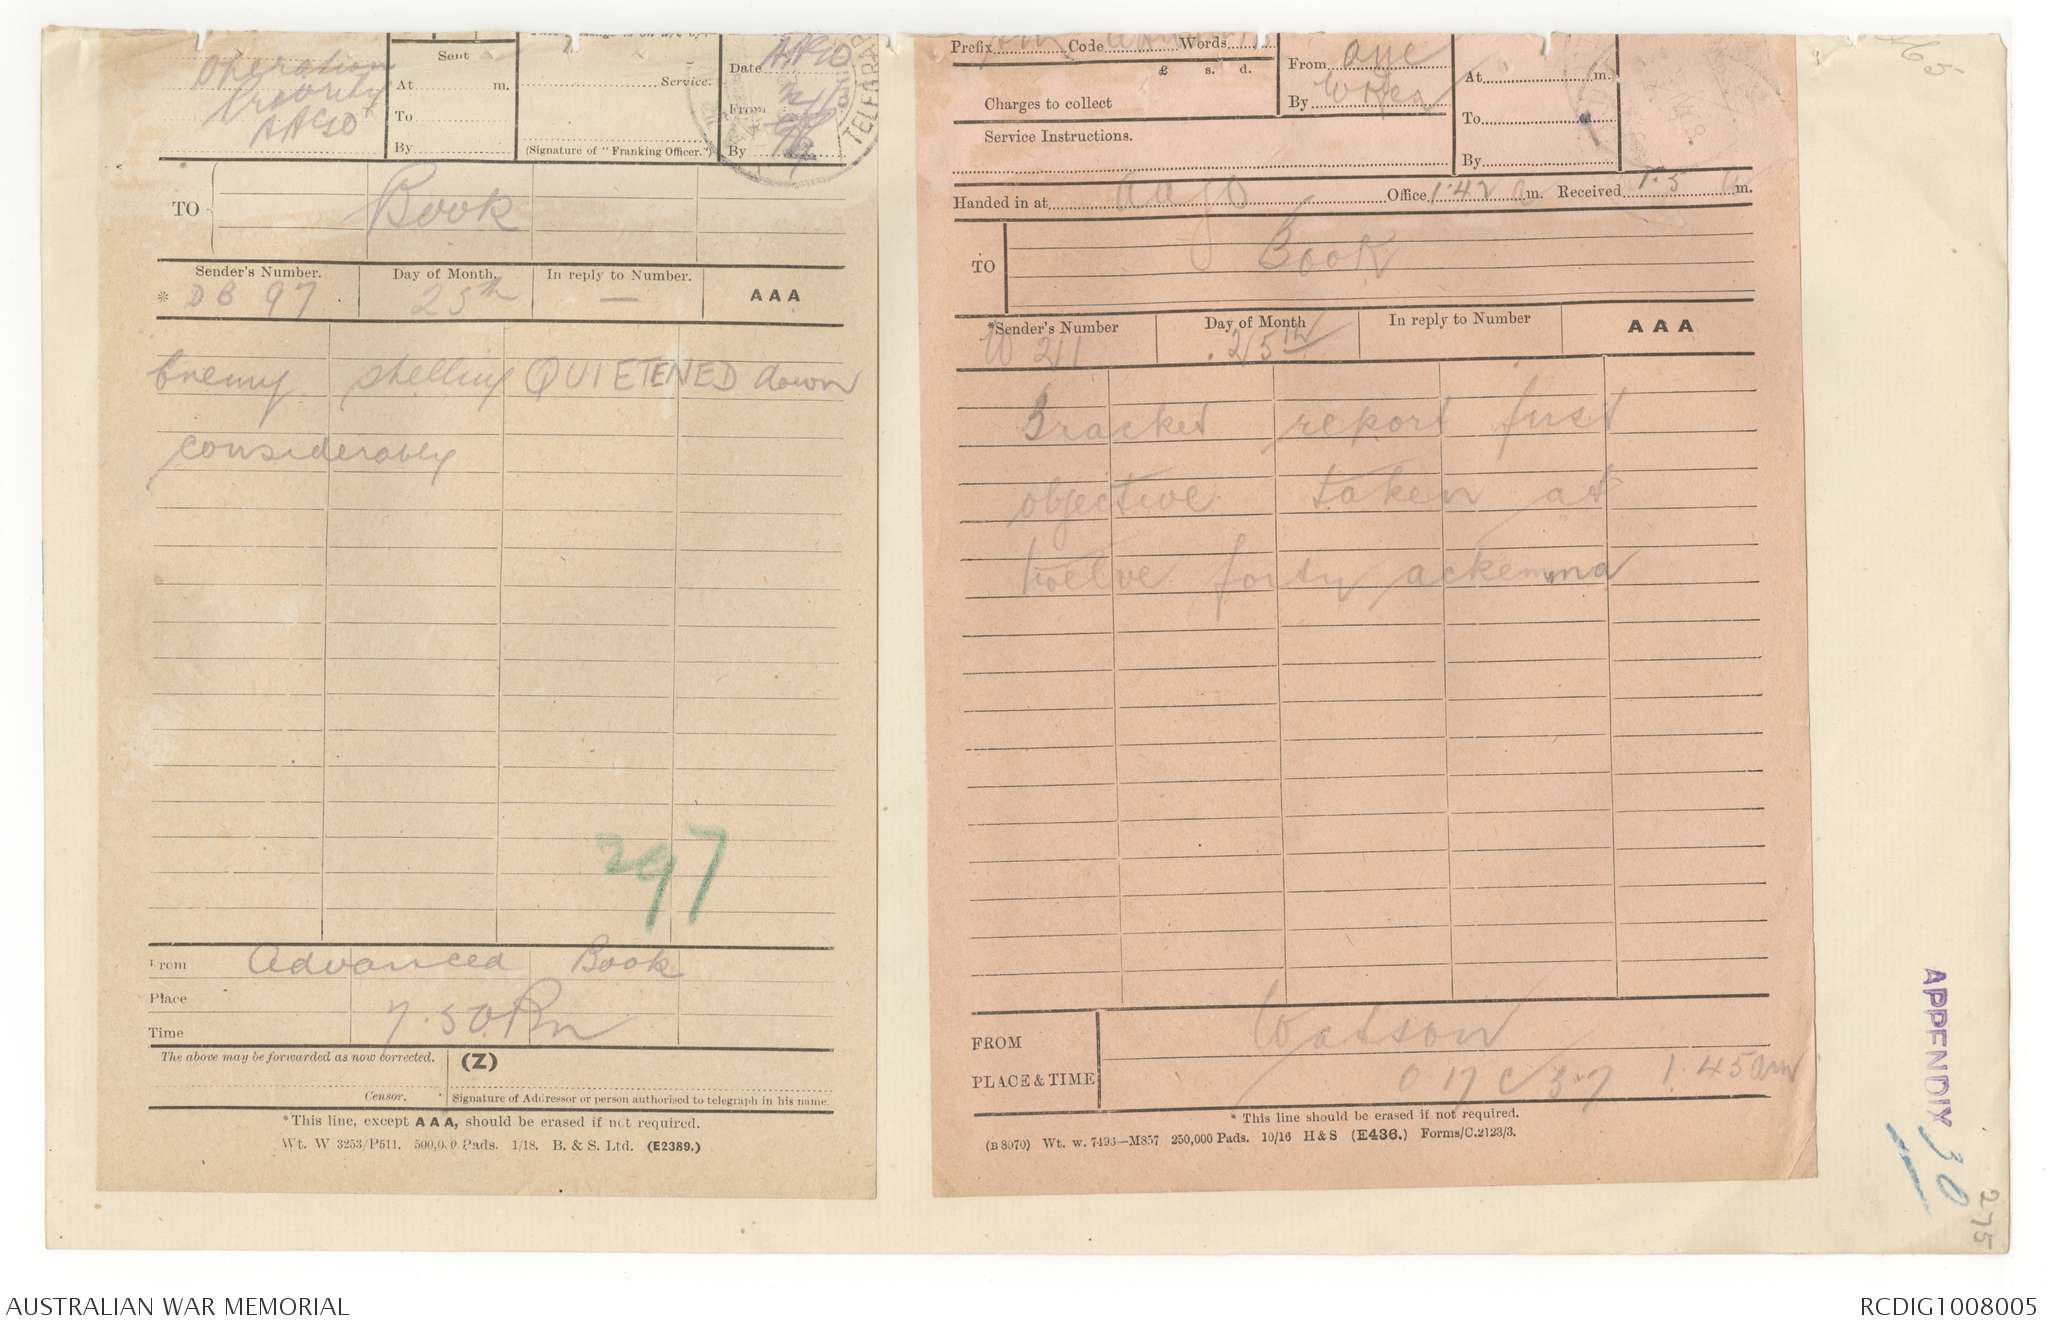 Operation
Priority
Sent
At m.
To
By
Service.
(Signature of "Franking Officer.")
Date
From
By
TO
Book
Sender's Number.
Day of Month.
In reply to Number.
AAA
* DB 97
25th
—
Enemy shelling QUIETENED down
considerably
297
From Advanced Book
Place
Time 7.50 Pm
The above may be forwarded as now corrected.
(Z)
Censor.
Signature of Addressor or person authorised to telegraph in his name.
*This line, except AAA, should be erased if not required.
Wt. W 3253/P511. 500,000 Pads. 1/18. B. & S. Ltd. (E2389.)
Prefix Code Words
£ s. d.
Charges to collect
Service Instructions.
From
By
At m.
To
By
Handed in at Office 1.42 a m. Received m.
TO
Book
*Sender's Number
Day of Month
In reply to Number
AAA
W 211
25th
Bracket report first
objective taken at
twelve forty ackemma
FROM Watson
PLACE & TIME O 17 c 3.7 1.45 am
* This line should be erased if not required.
(B 8970) Wt. w. 7493—M857 250,000 Pads. 10/16 H & S (E436.) Forms/C.2123/3.
APPENDIX 30
275
AUSTRALIAN WAR MEMORIAL
RCDIG1008005